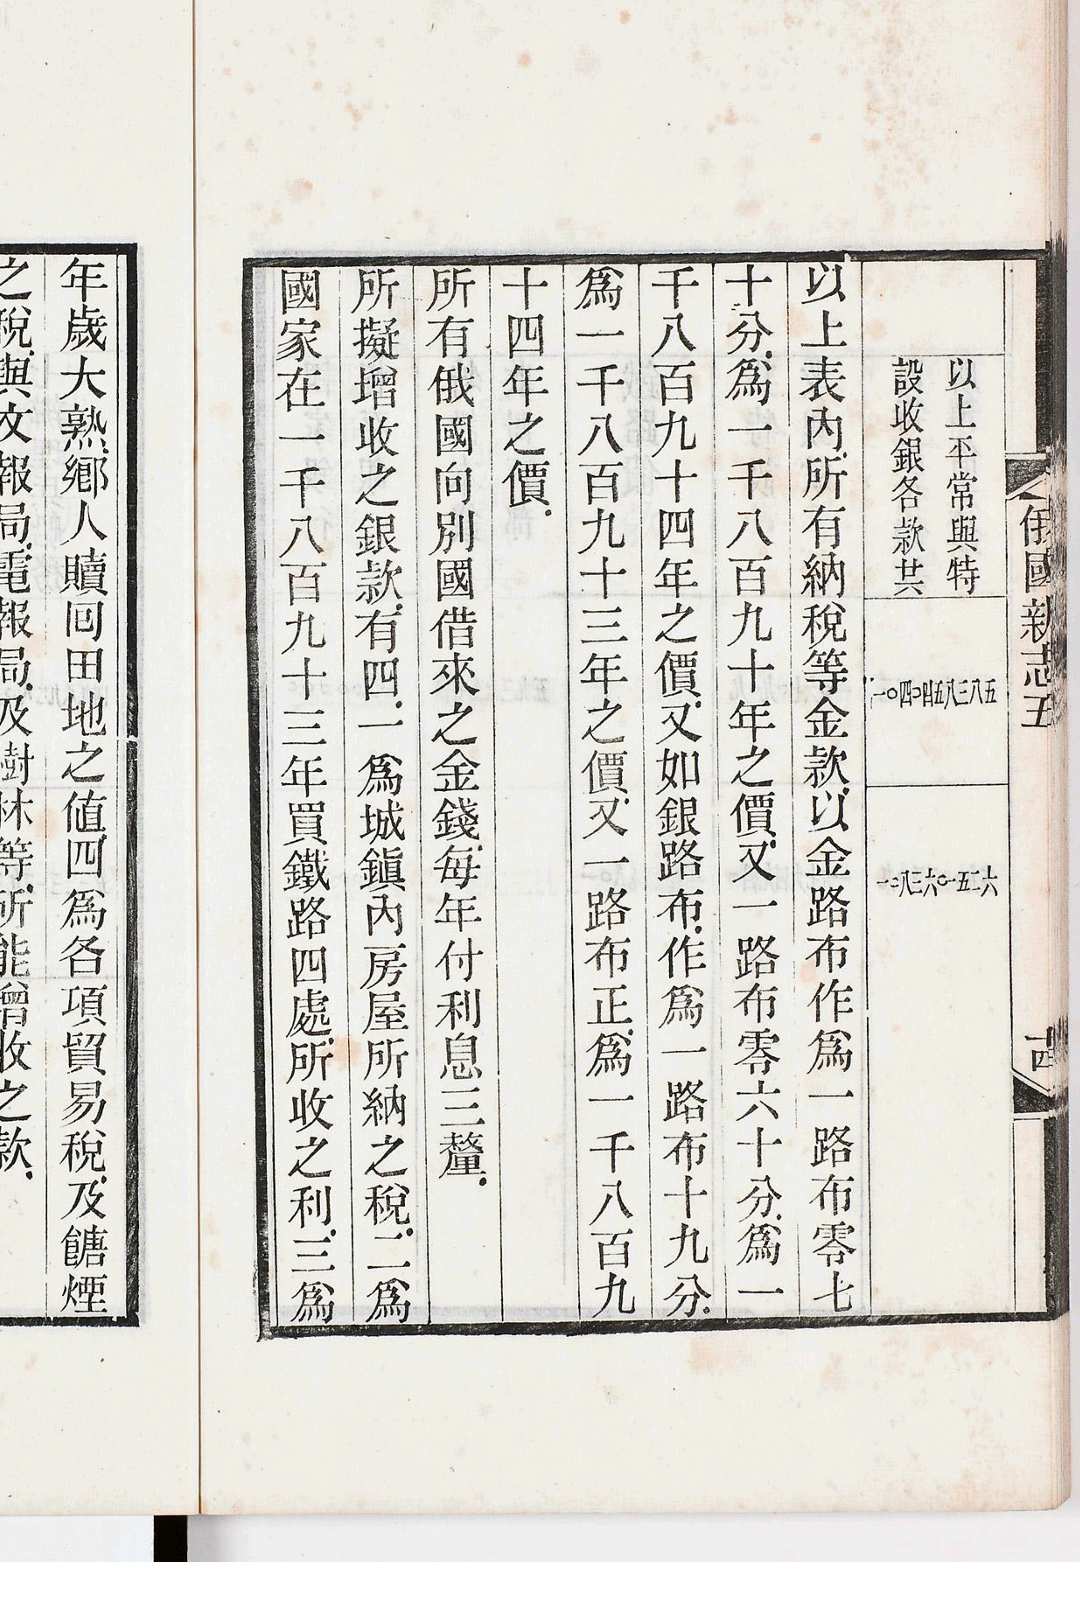 俄國新志五
十四
以上平常與特
設收銀各款共
一〇四〇四五八三八五
一〇八三六〇一五二六
以上表內、所有納稅等金款、以金路布作爲一路布零七
十分、爲一千八百九十年之價、又一路布零六十分、爲一
千八百九十四年之價、又如銀路布、作爲一路布十九分、
爲一千八百九十三年之價、又一路布正、爲一千八百九
十四年之價、
所有俄國向別國借來之金錢、每年付利息三釐、
所擬增收之銀款、有四、一爲城鎭內房屋所納之稅、二爲
國家在一千八百九十三年買鐵路四處、所收之利、三爲
年歲大熟、鄉人贖回田地之値、四爲各項貿易稅、及餹煙
之稅、與文報局、電報局、及樹林等、所能增收之款、